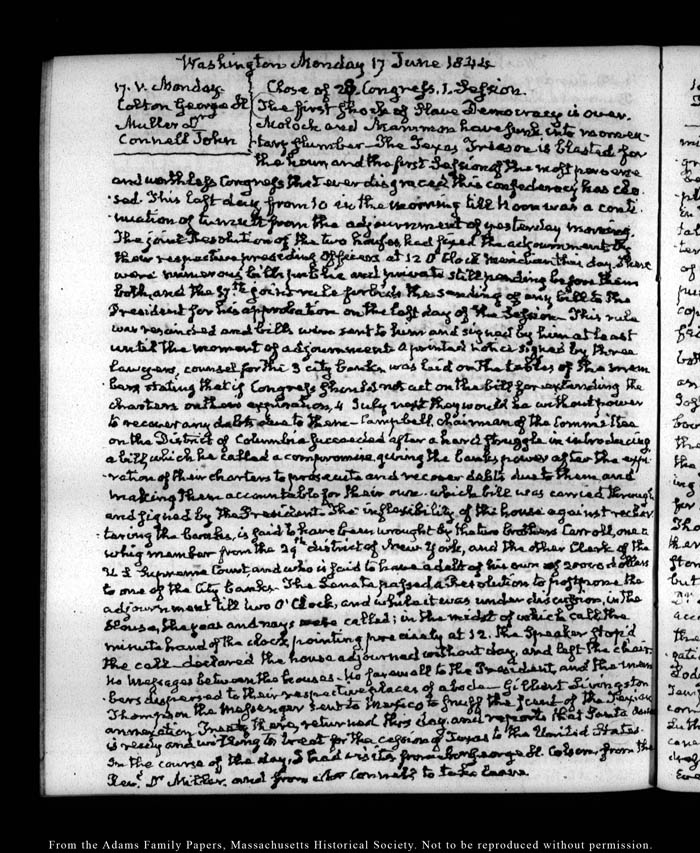 Washington Monday 17 June 1844
17. V. Monday. Close of 28. Congress, 1. Session.
Colton George H The first shock of Slave Democracy is over.
Muller Dr Moloch and Mammon have sunk into momen-
Connell John tary slumber — The Texas Treason is blasted for
the hour, and the first Session of the most perverse
and worthless Congress that ever disgraced this confederacy has clo-
sed. This last day, from 10 in the morning till Noon was a conti-
nuation of tumult from the adjournment of yesterday morning.
The joint Resolution of the two houses, had fixed the adjournment by
their respective presiding Officers at 12 O'Clock meridian this day. There
were numerous bills public and private still pending before them
both, and the 17th joint rule forbids the sending of any bill to the
President for his approbation on the last day of the Session. This rule
was rescinded and bills were sent to him and signed by him at least
until the moment of adjournment. A printed notice signed by three
lawyers, counsel for the 3 city banks, was laid on the tables of the mem-
bers, stating that if Congress should not act on the bill for extending the
charters on their expiration, 4 July next they would be without power
to recover any debts due to them — Campbell, chairman of the Committee
on the District of Columbia succeeded after a hard struggle in introducing
a bill, which he called a compromise, giving the banks power after the expi-
ration of their charters to prosecute and recover debts due to them, and
making them accountable for their own. which bill was carried through
and signed by the President. The inflexibility of the house against rechar-
tering the banks, is said to have been wrought by the two brothers Carroll, one a
whig member from the 29th district of New York, and the other Clerk of the
U.S. Supreme Court, and who is said to have a debt of his own of 20000 dollars
to one of the City banks. The Senate passed a Resolution to postpone the
adjournment till two O'Clock, and while it was under discussion, in the
House, the yeas and nays were called; in the midst of which call the
minute hand of the clock pointing precisely at 12. the Speaker stop'd
the call — declared the house adjourned without day, and left the chair.
No Messages between the houses. No farewell to the President, and the mem-
bers dispersed to their respective places of abode — Gilbert Livingston
Thompson the Messenger sent to Mexico to snuff the scent of the Texian
annexation Treaty there, returned this day, and reports that Santa Anna
is ready and willing to treat for the cession of Texas to the United States.
In the course of the day, I had visits from George H. Colton, from the
Revd Dr Muller, and from Connell to take leave.
From the Adams Family Papers, Massachusetts Historical Society. Not to be reproduced without permission.